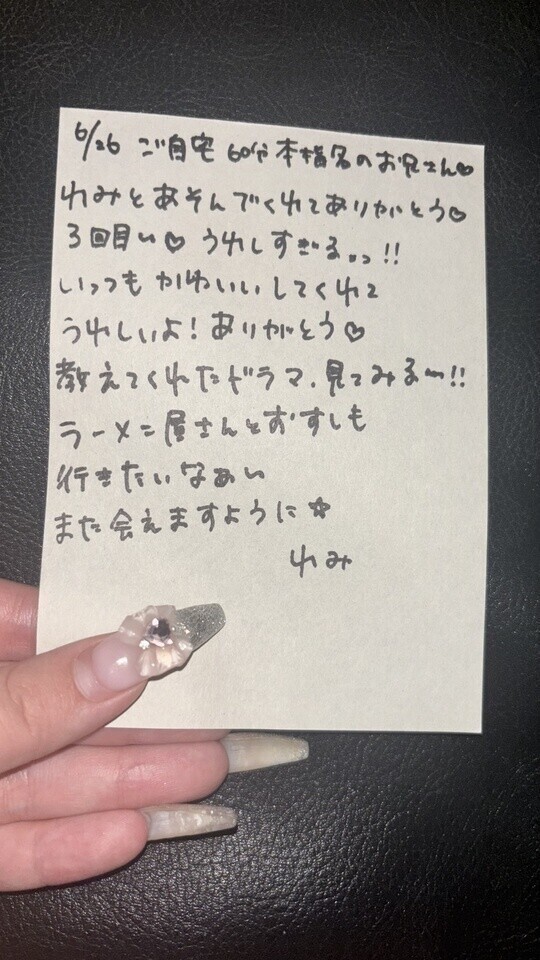 6/26 ご自宅 60分 本指名のお兄さん♡
れみとあそんでくれてありがとう♡
3回目〜♡ うれしすぎるっっ!!
いっつも かわいいしてくれて
うれしいよ!ありがとう♡
教えてくれたドラマ、見てみる〜!!
ラーメン屋さんとおすしも
行きたいなぁい
また会えますように☆
れみ